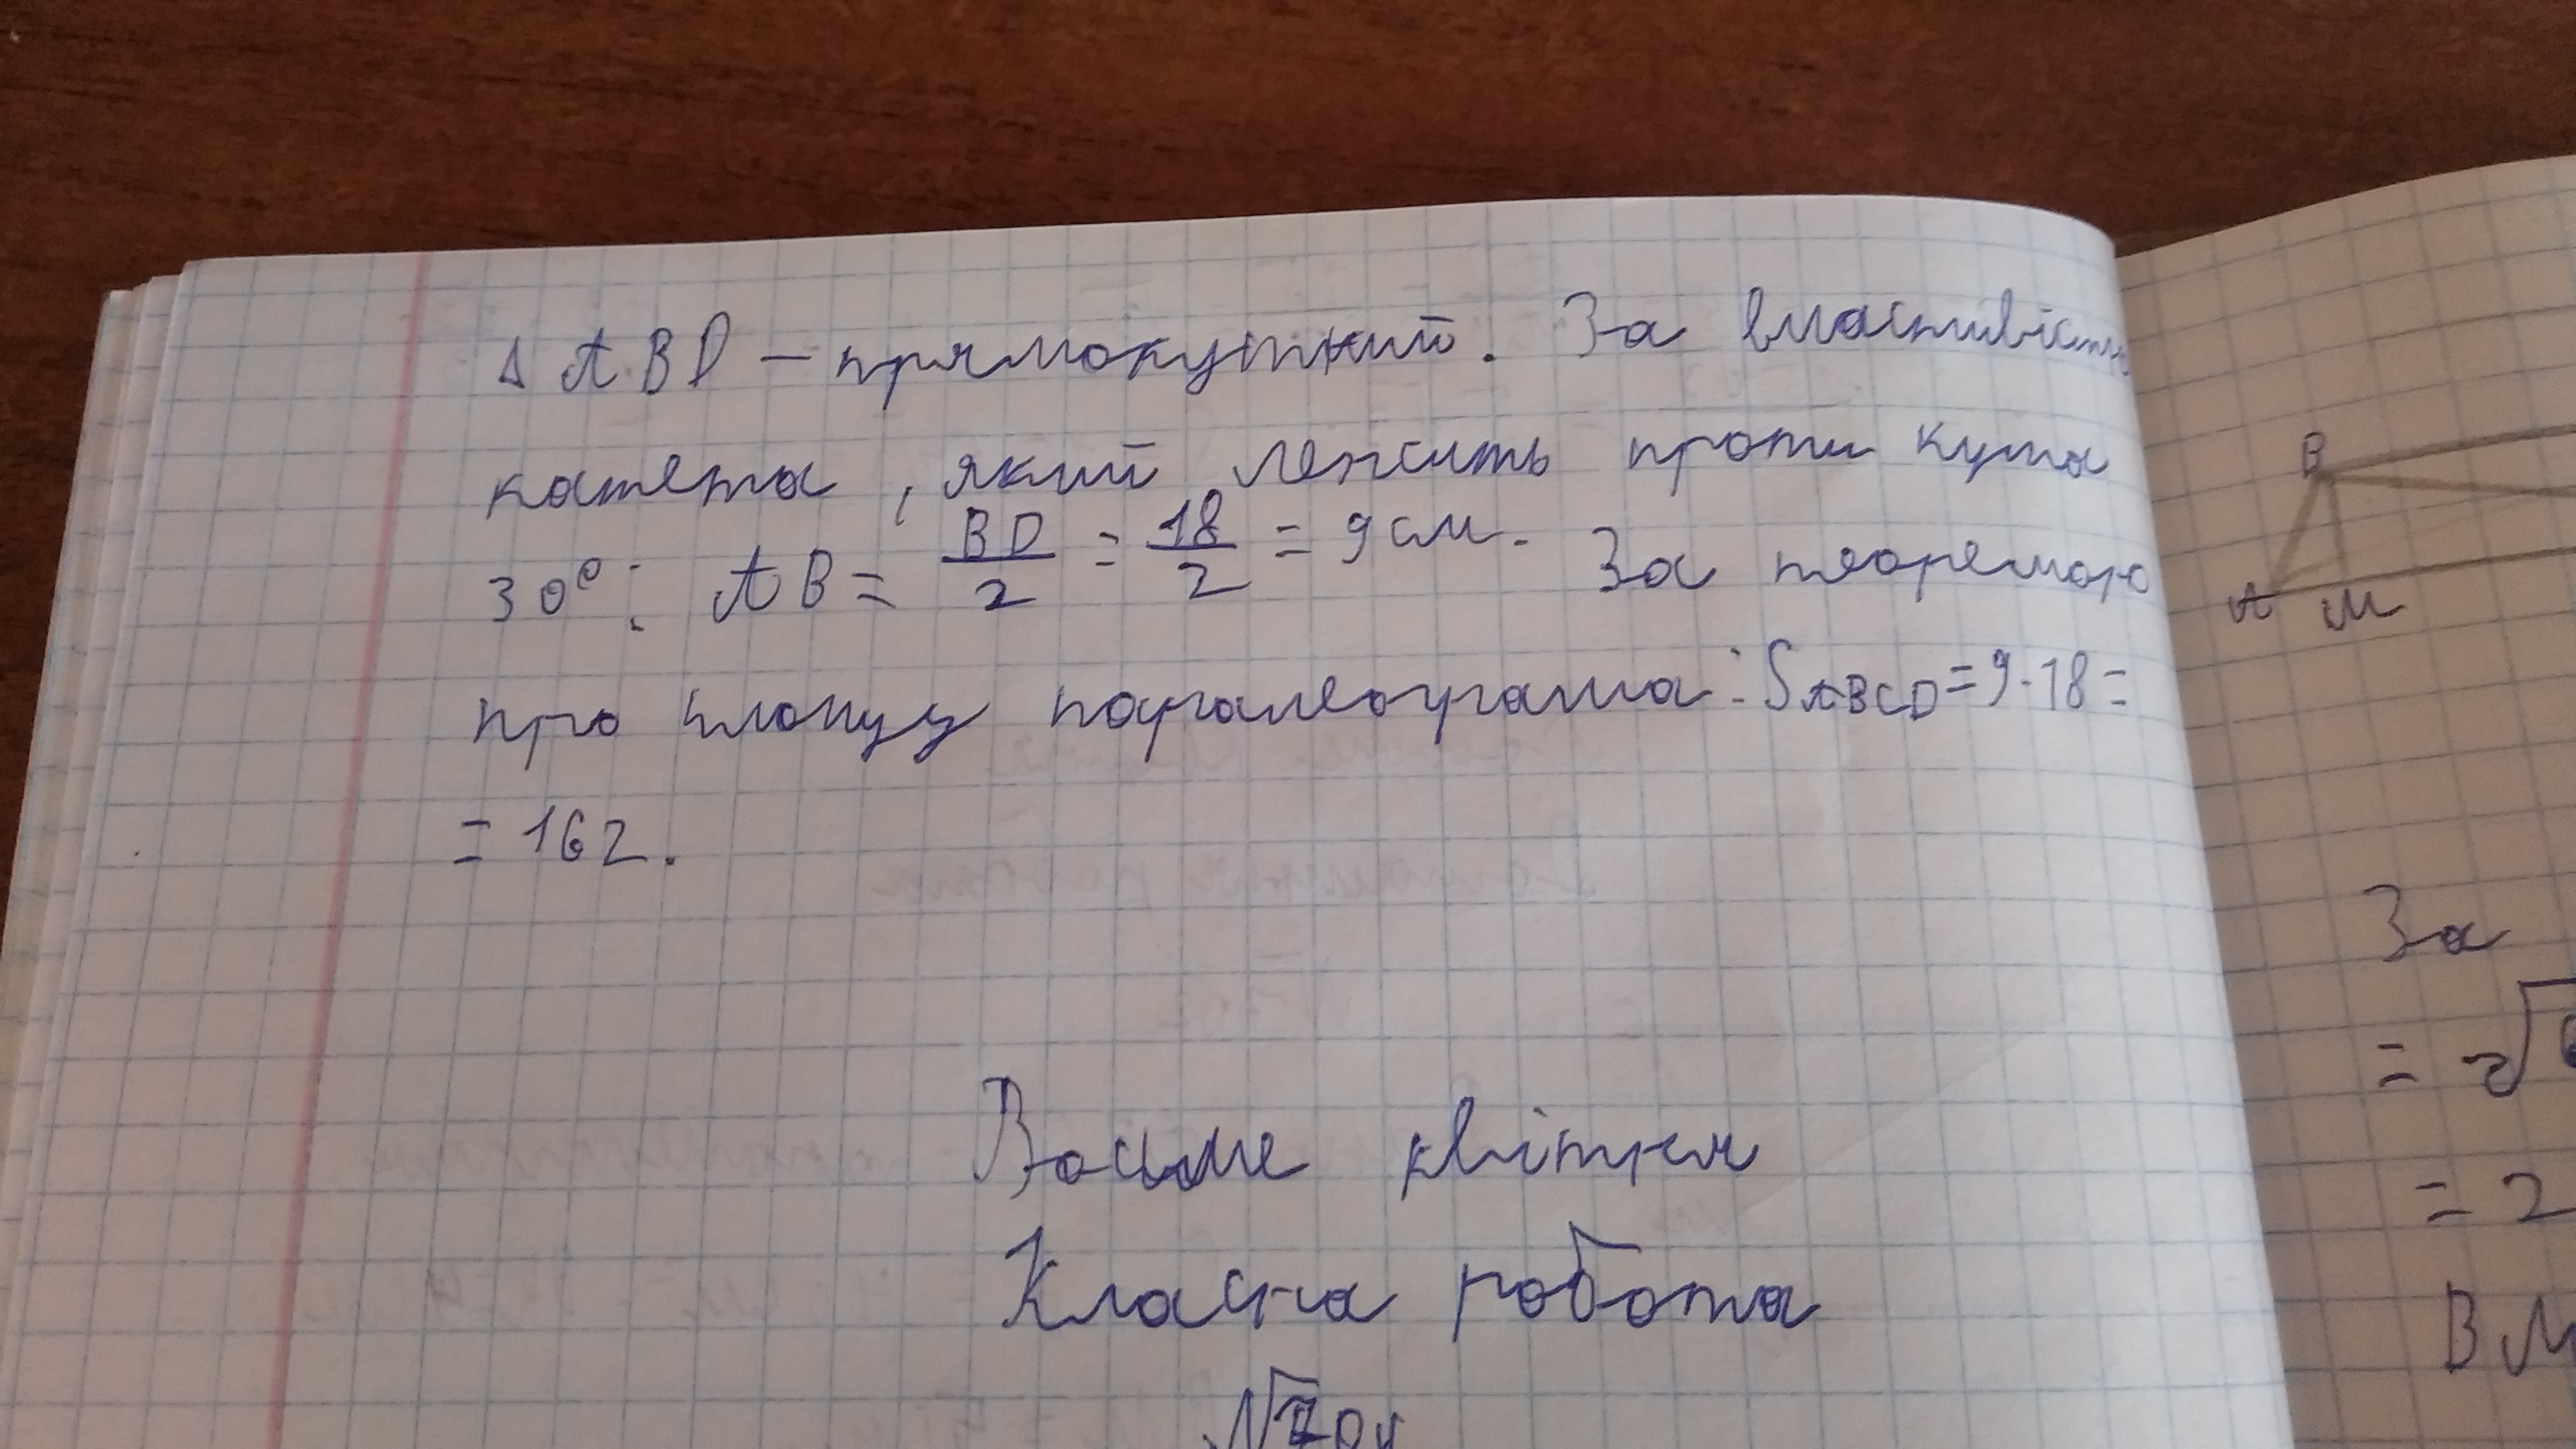 Δ ABD – прямокутний. За властивістю
катета, який лежить проти кута
30°: AB = BD/2 = 18/2 = 9 см. За теоремою
про площу паралеограма: S ABCD = 9·18 =
= 162.
Восьме квітня
Класна робота
B
A M
За
= 2√
= 2
BM